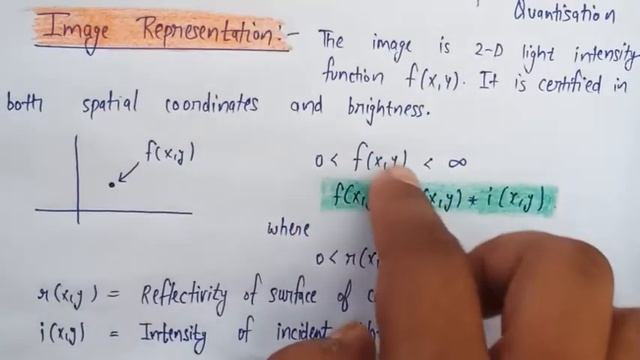 Quantisation
Image Representation:-
The image is 2-D light intensity
function f(x,y). It is certified in
both spatial coordinates and brightness.
f(x,y)
0 < f(x,y) < ∞
f(x, x,y) * i(x,y)
where
0 < r(x,
r(x,y) = Reflectivity of surface of
i(x,y) = Intensity of incident